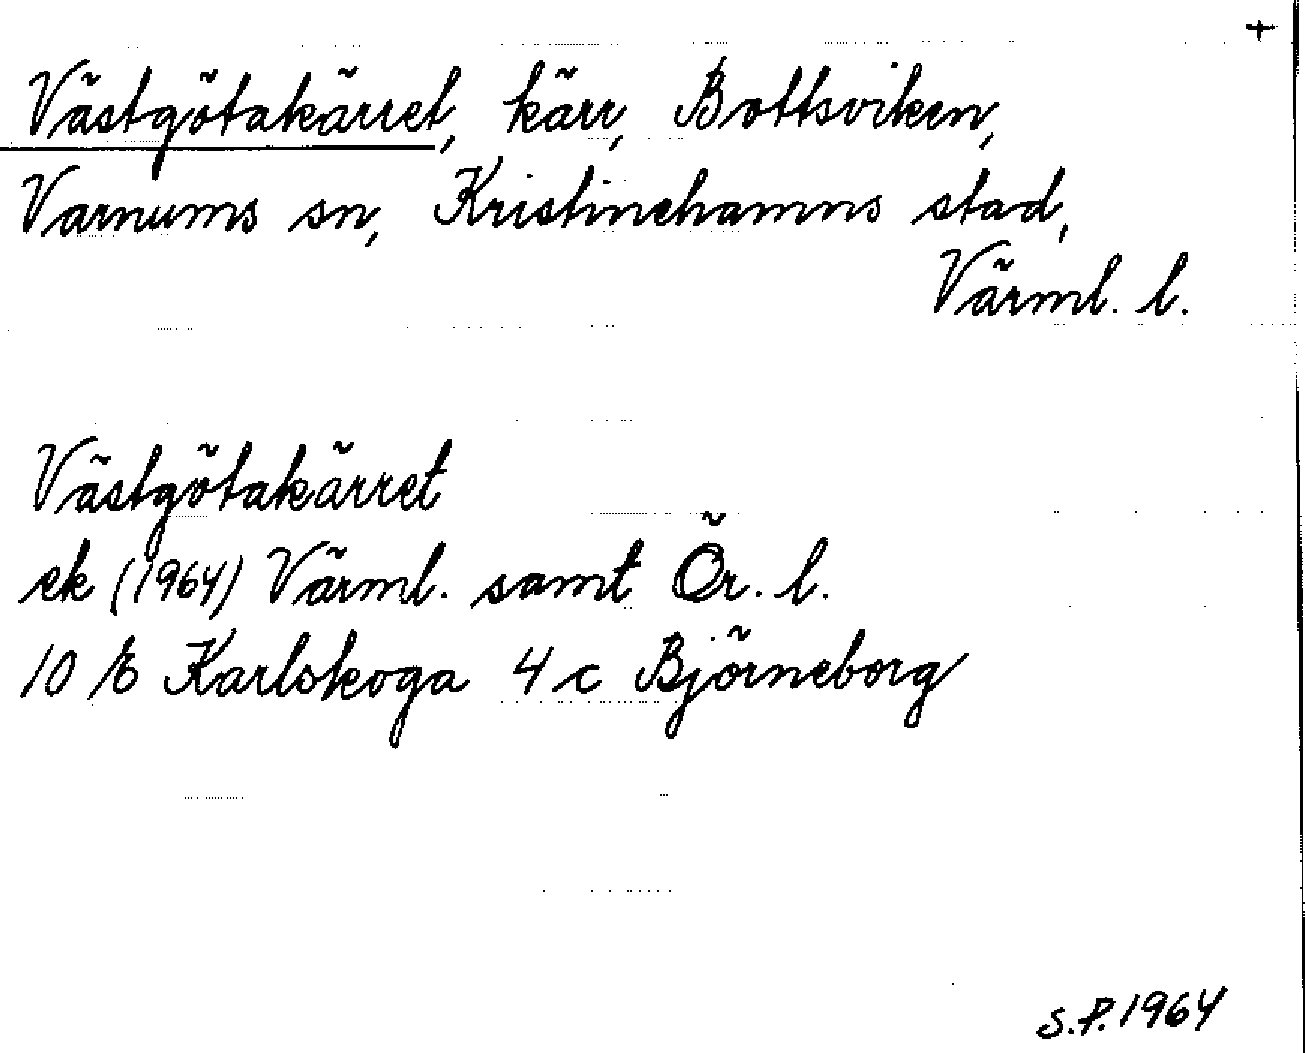 +
Västgötakärret, kärr, Bottsviken,
Varnums sn, Kristinehamns stad,
Värml. l.
Västgötakärret
ek (1964) Värml. samt Ör. l.
10 E Karlskoga 4 c Björneborg
S.P. 1964